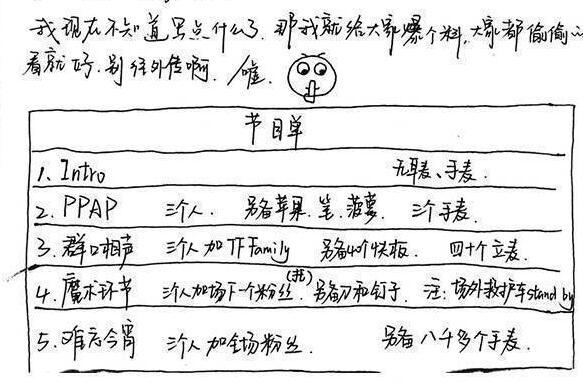 我现在不知道写点什么了，那我就给大家爆个料，大家都偷偷
看就好，别往外传啊，嘘
节目单
1. Intro 无耳麦、手麦.
2. PPAP 三个人. 另备苹果.笔.菠萝. 三个手麦.
3. 群口相声 三个人加TFFamily 另备40个快板. 四十个立麦.
4. 魔术环节 三个人加场下一个粉丝(托).另备刀和钉子. 注:场外救护车stand by
5. 难忘今宵 三个人加全场粉丝. 另备八千多个手麦.